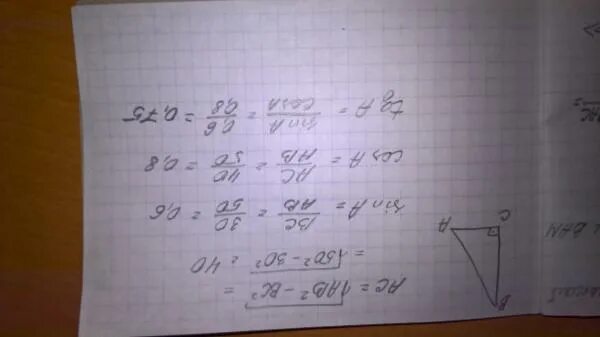 B
A
C
AC = √AB² - BC² =
= √50² - 30² = 40
sin A = BC/AB = 30/50 = 0,6
cos A = AC/AB = 40/50 = 0,8
tg A = sin A/cos A = 0,6/0,8 = 0,75